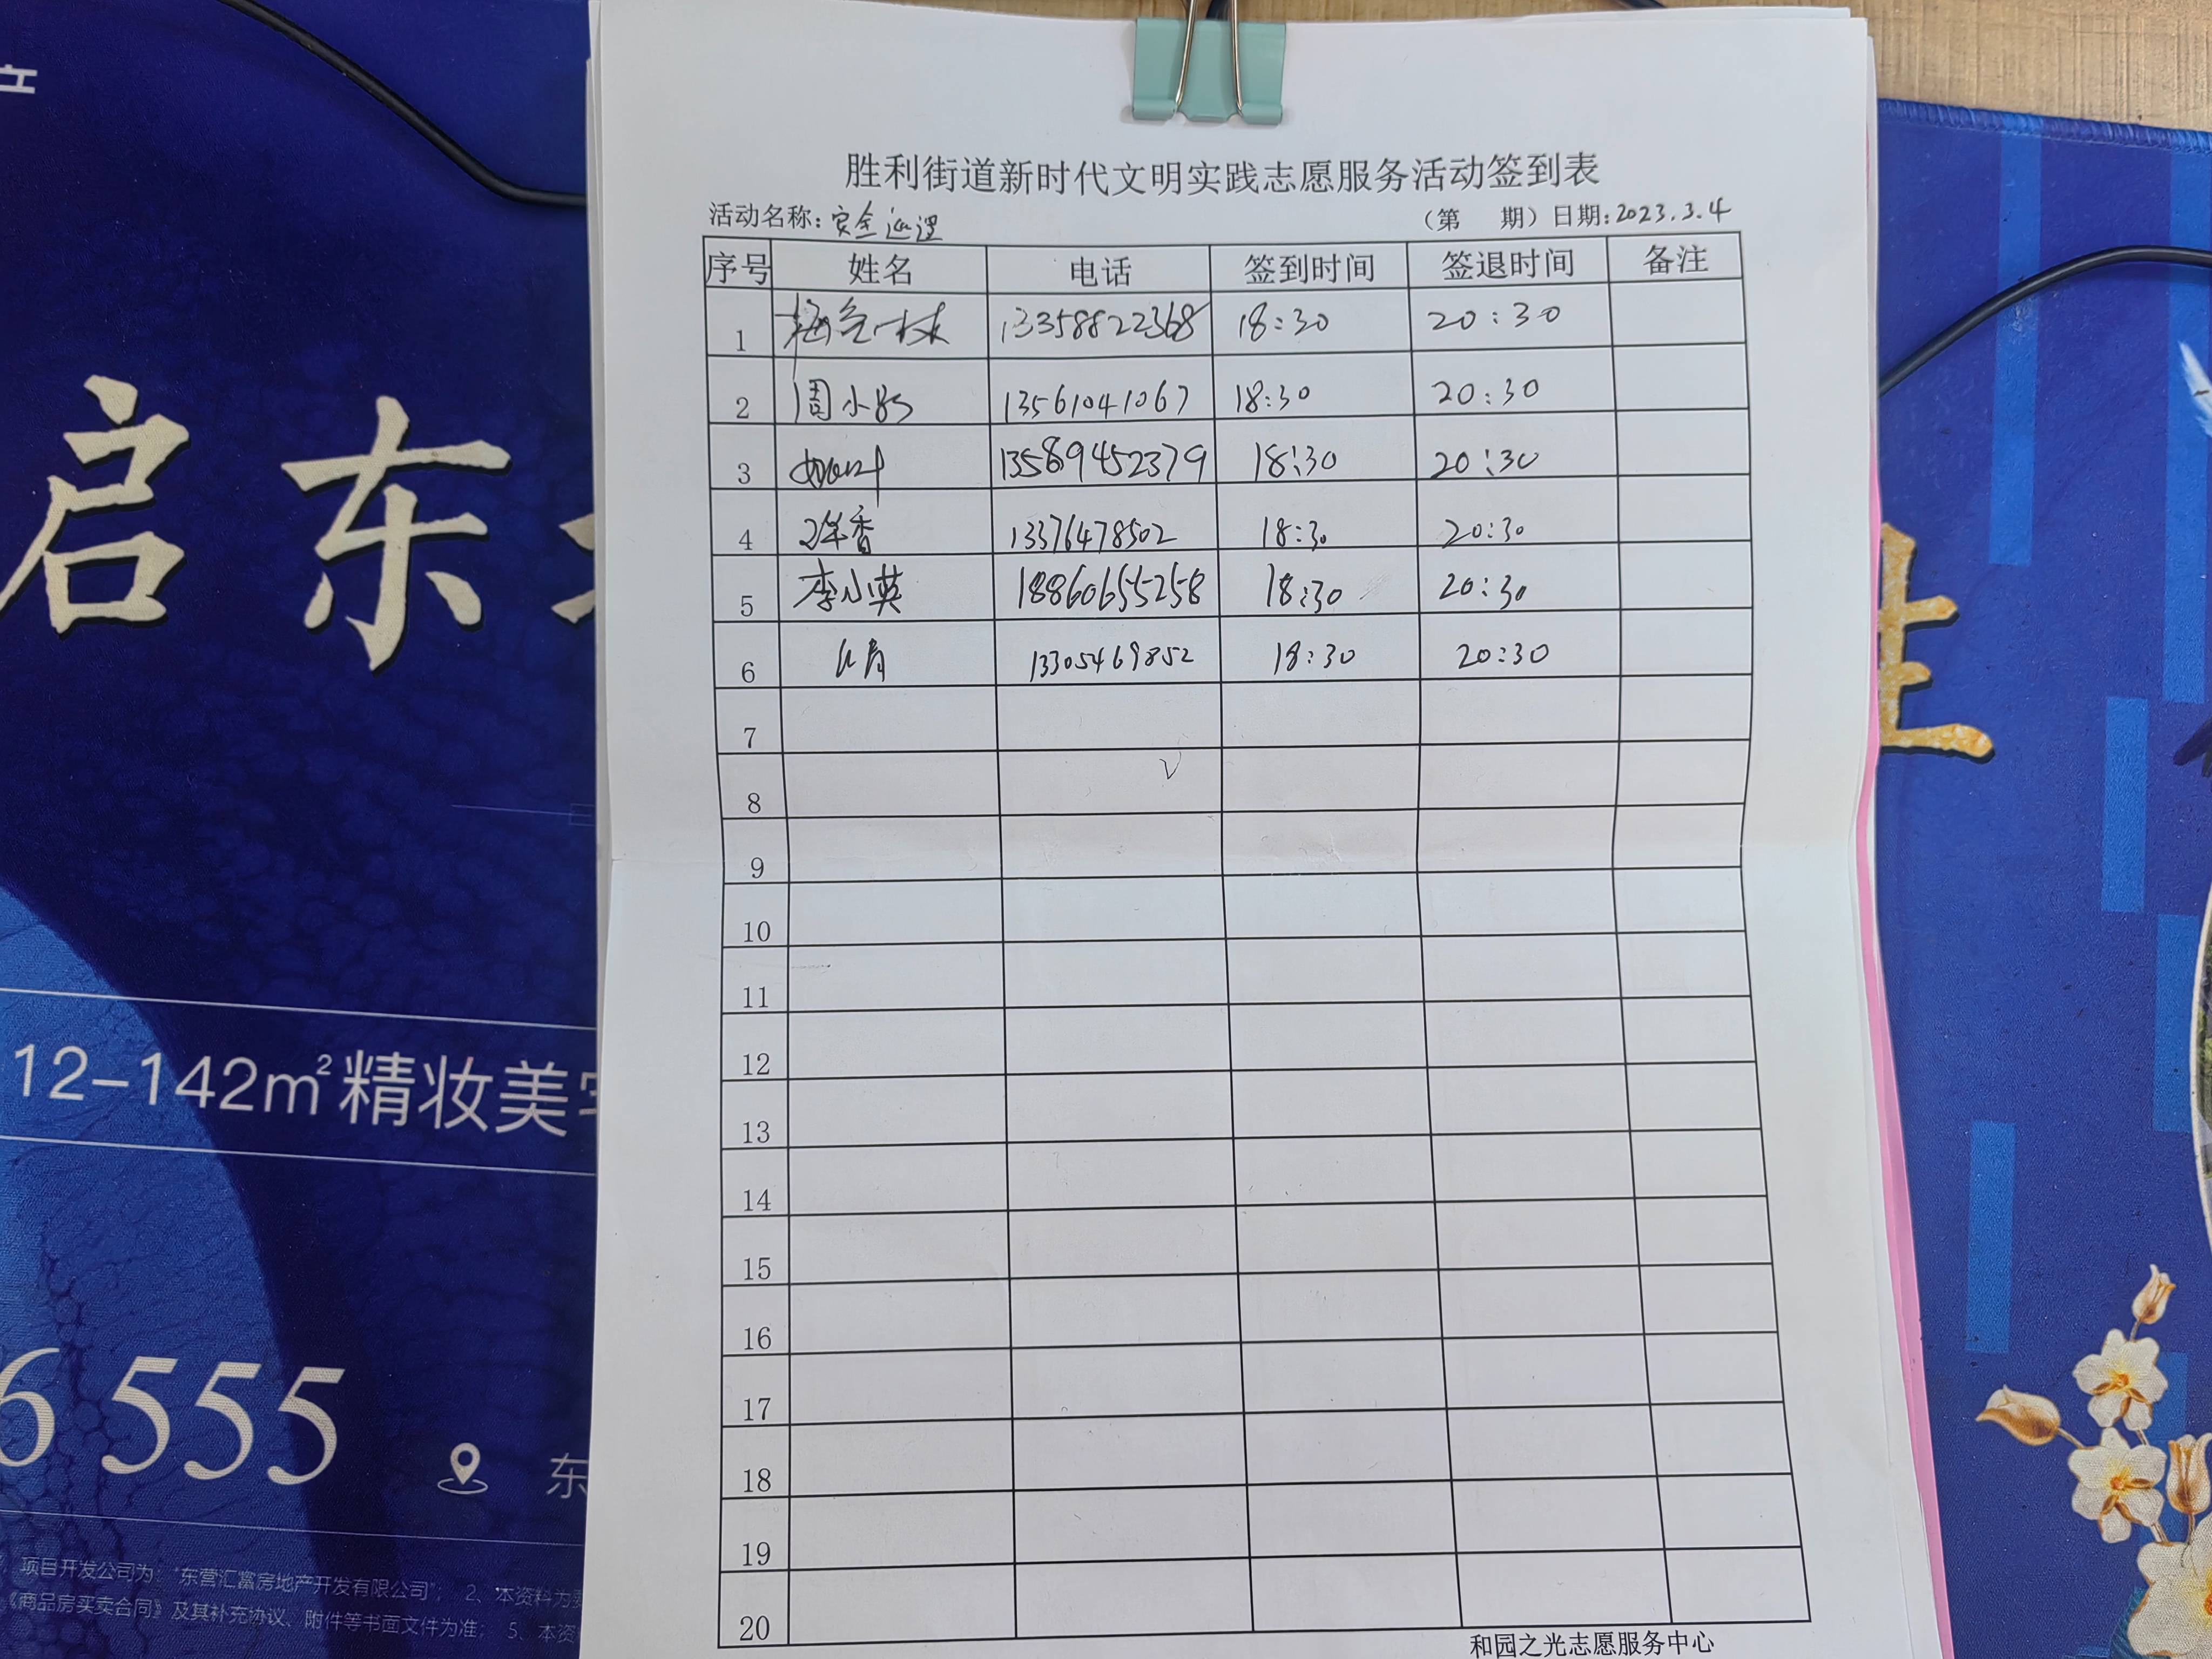 胜利街道新时代文明实践志愿服务活动签到表
活动名称：安全巡逻 （第 期）日期：2023.3.4
序号 姓名 电话 签到时间 签退时间 备注
1 13358822368 18:30 20:30
2 周小 13561041067 18:30 20:30
3 13589452379 18:30 20:30
4 香 13376478502 18:30 20:30
5 李小英 18860655258 18:30 20:30
6 13305469852 18:30 20:30
7
8
9
10
11
12
13
14
15
16
17
18
19
20
和园之光志愿服务中心
启东
12-142m²精妆美
6555
东
项目开发公司为："东营汇富房地产开发有限公司"； 2、本资料为
《商品房买卖合同》及其补充协议、附件等书面文件为准； 5、本资